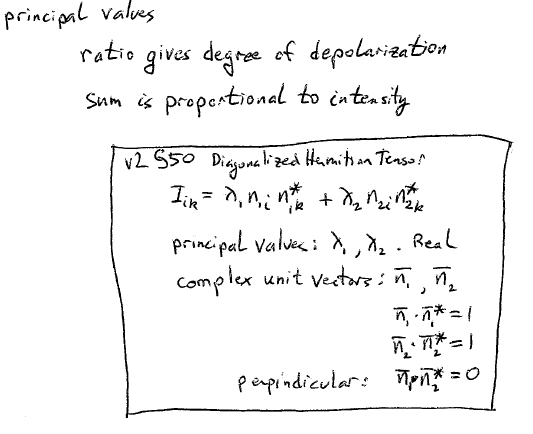 principal values
ratio gives degree of depolarization
sum is proportional to intensity
v2 §50 Diagonalized Hermitian Tensor
I_{ik} = λ₁ n_{1i} n*_{1k} + λ₂ n_{2i} n*_{2k}
principal values: λ₁, λ₂. Real
complex unit vectors: n̄₁, n̄₂
n̄₁ · n̄₁* = 1
n̄₂ · n̄₂* = 1
perpindicular: n̄₁ · n̄₂* = 0